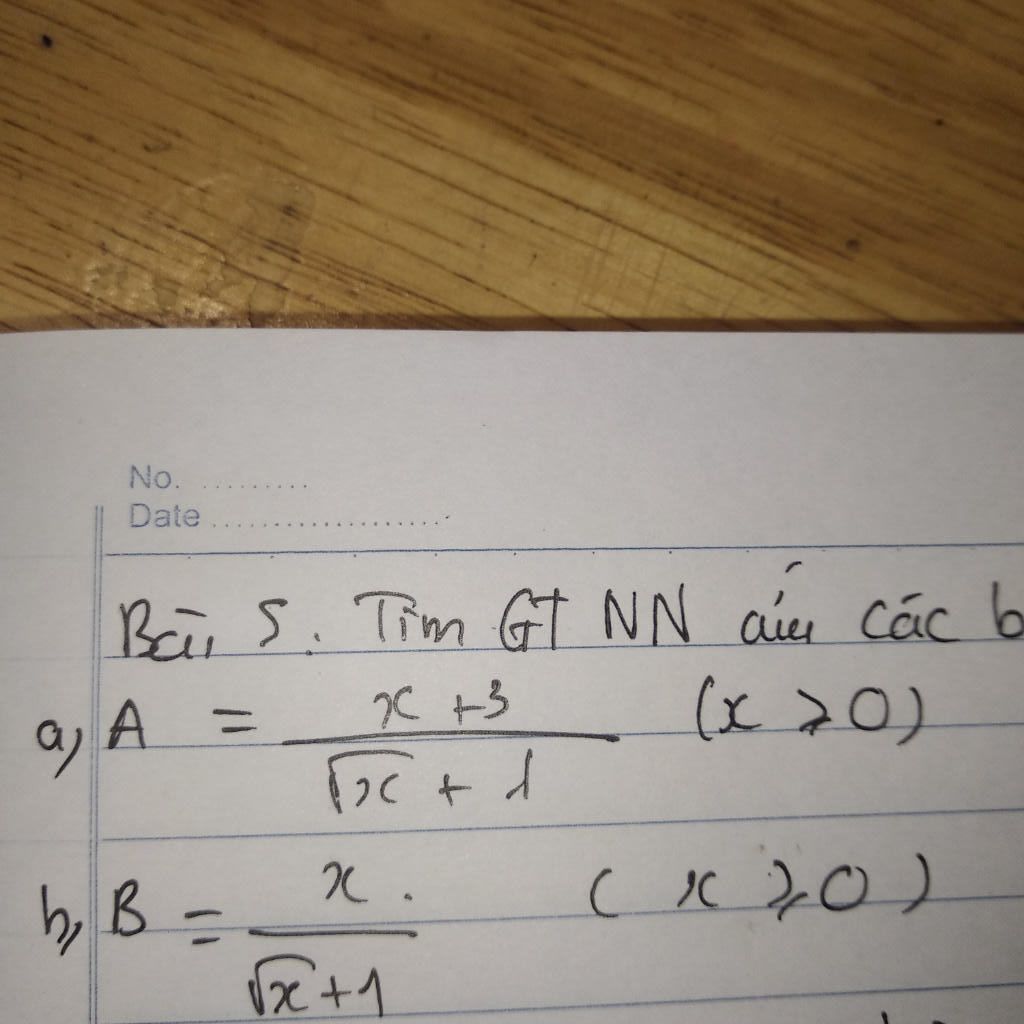 No. .........
Date ....................
Bài 5. Tìm GTNN của các b
a, A = \frac{x+3}{\sqrt{x}+1} (x ≥ 0)
b, B = \frac{x}{\sqrt{x}+1} (x ≥ 0)